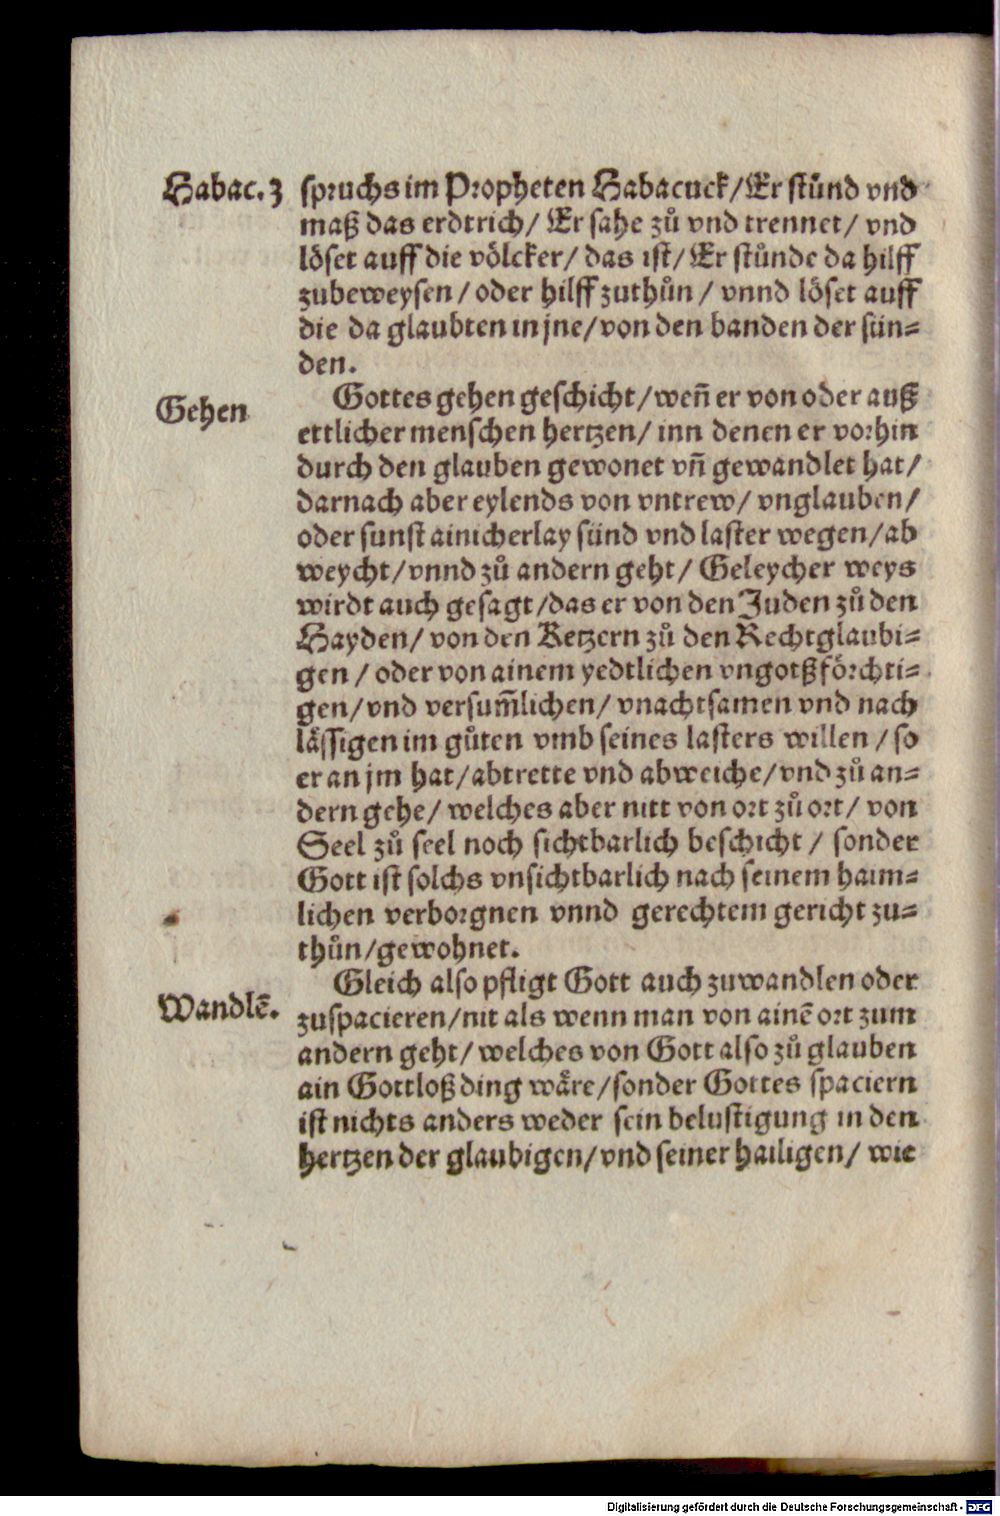 Habac. 3 spruchs im Propheten Habacuck/ Er stůnd vnd
maß das erdtrich/ Er sahe zů vnd trennet/ vnd
löset auff die völcker/ das ist/ Er stůnde da hilff
zubeweysen/ oder hilff zuthůn/ vnnd löset auff
die da glaubten in jne/ von den banden der sün-
den.
Gottes gehen geschicht/ weñ er von oder auß
Gehen
ettlicher menschen hertzen/ inn denen er vorhin
durch den glauben gewonet vñ gewandlet hat/
darnach aber eylends von vntrew/ vnglauben/
oder sunst ainicherlay sünd vnd laster wegen/ ab
weycht/ vnnd zů andern geht/ Geleycher weys
wirdt auch gesagt/ das er von den Juden zů den
Hayden/ von den Ketzern zů den Rechtglaubi-
gen/ oder von ainem yedtlichen vngotßförchti-
gen/ vnd versum̃lichen/ vnachtsamen vnd nach
lässigen im gůten vmb seines lasters willen/ so
er an jm hat/ abtrette vnd abweiche/ vnd zů an-
dern gehe/ welches aber nitt von ort zů ort/ von
Seel zů seel noch sichtbarlich beschicht/ sonder
Gott ist solchs vnsichtbarlich nach seinem haim-
lichen verborgnen vnnd gerechtem gericht zu-
thůn/ gewohnet.
Gleich also pfligt Gott auch zuwandlen oder
Wandlẽ.
zuspacieren/ nit als wenn man von ainẽ ort zum
andern geht/ welches von Gott also zů glauben
ain Gottloß ding wäre/ sonder Gottes spaciern
ist nichts anders weder sein belustigung in den
hertzen der glaubigen/ vnd seiner hailigen/ wie
Digitalisierung gefördert durch die Deutsche Forschungsgemeinschaft - DFG